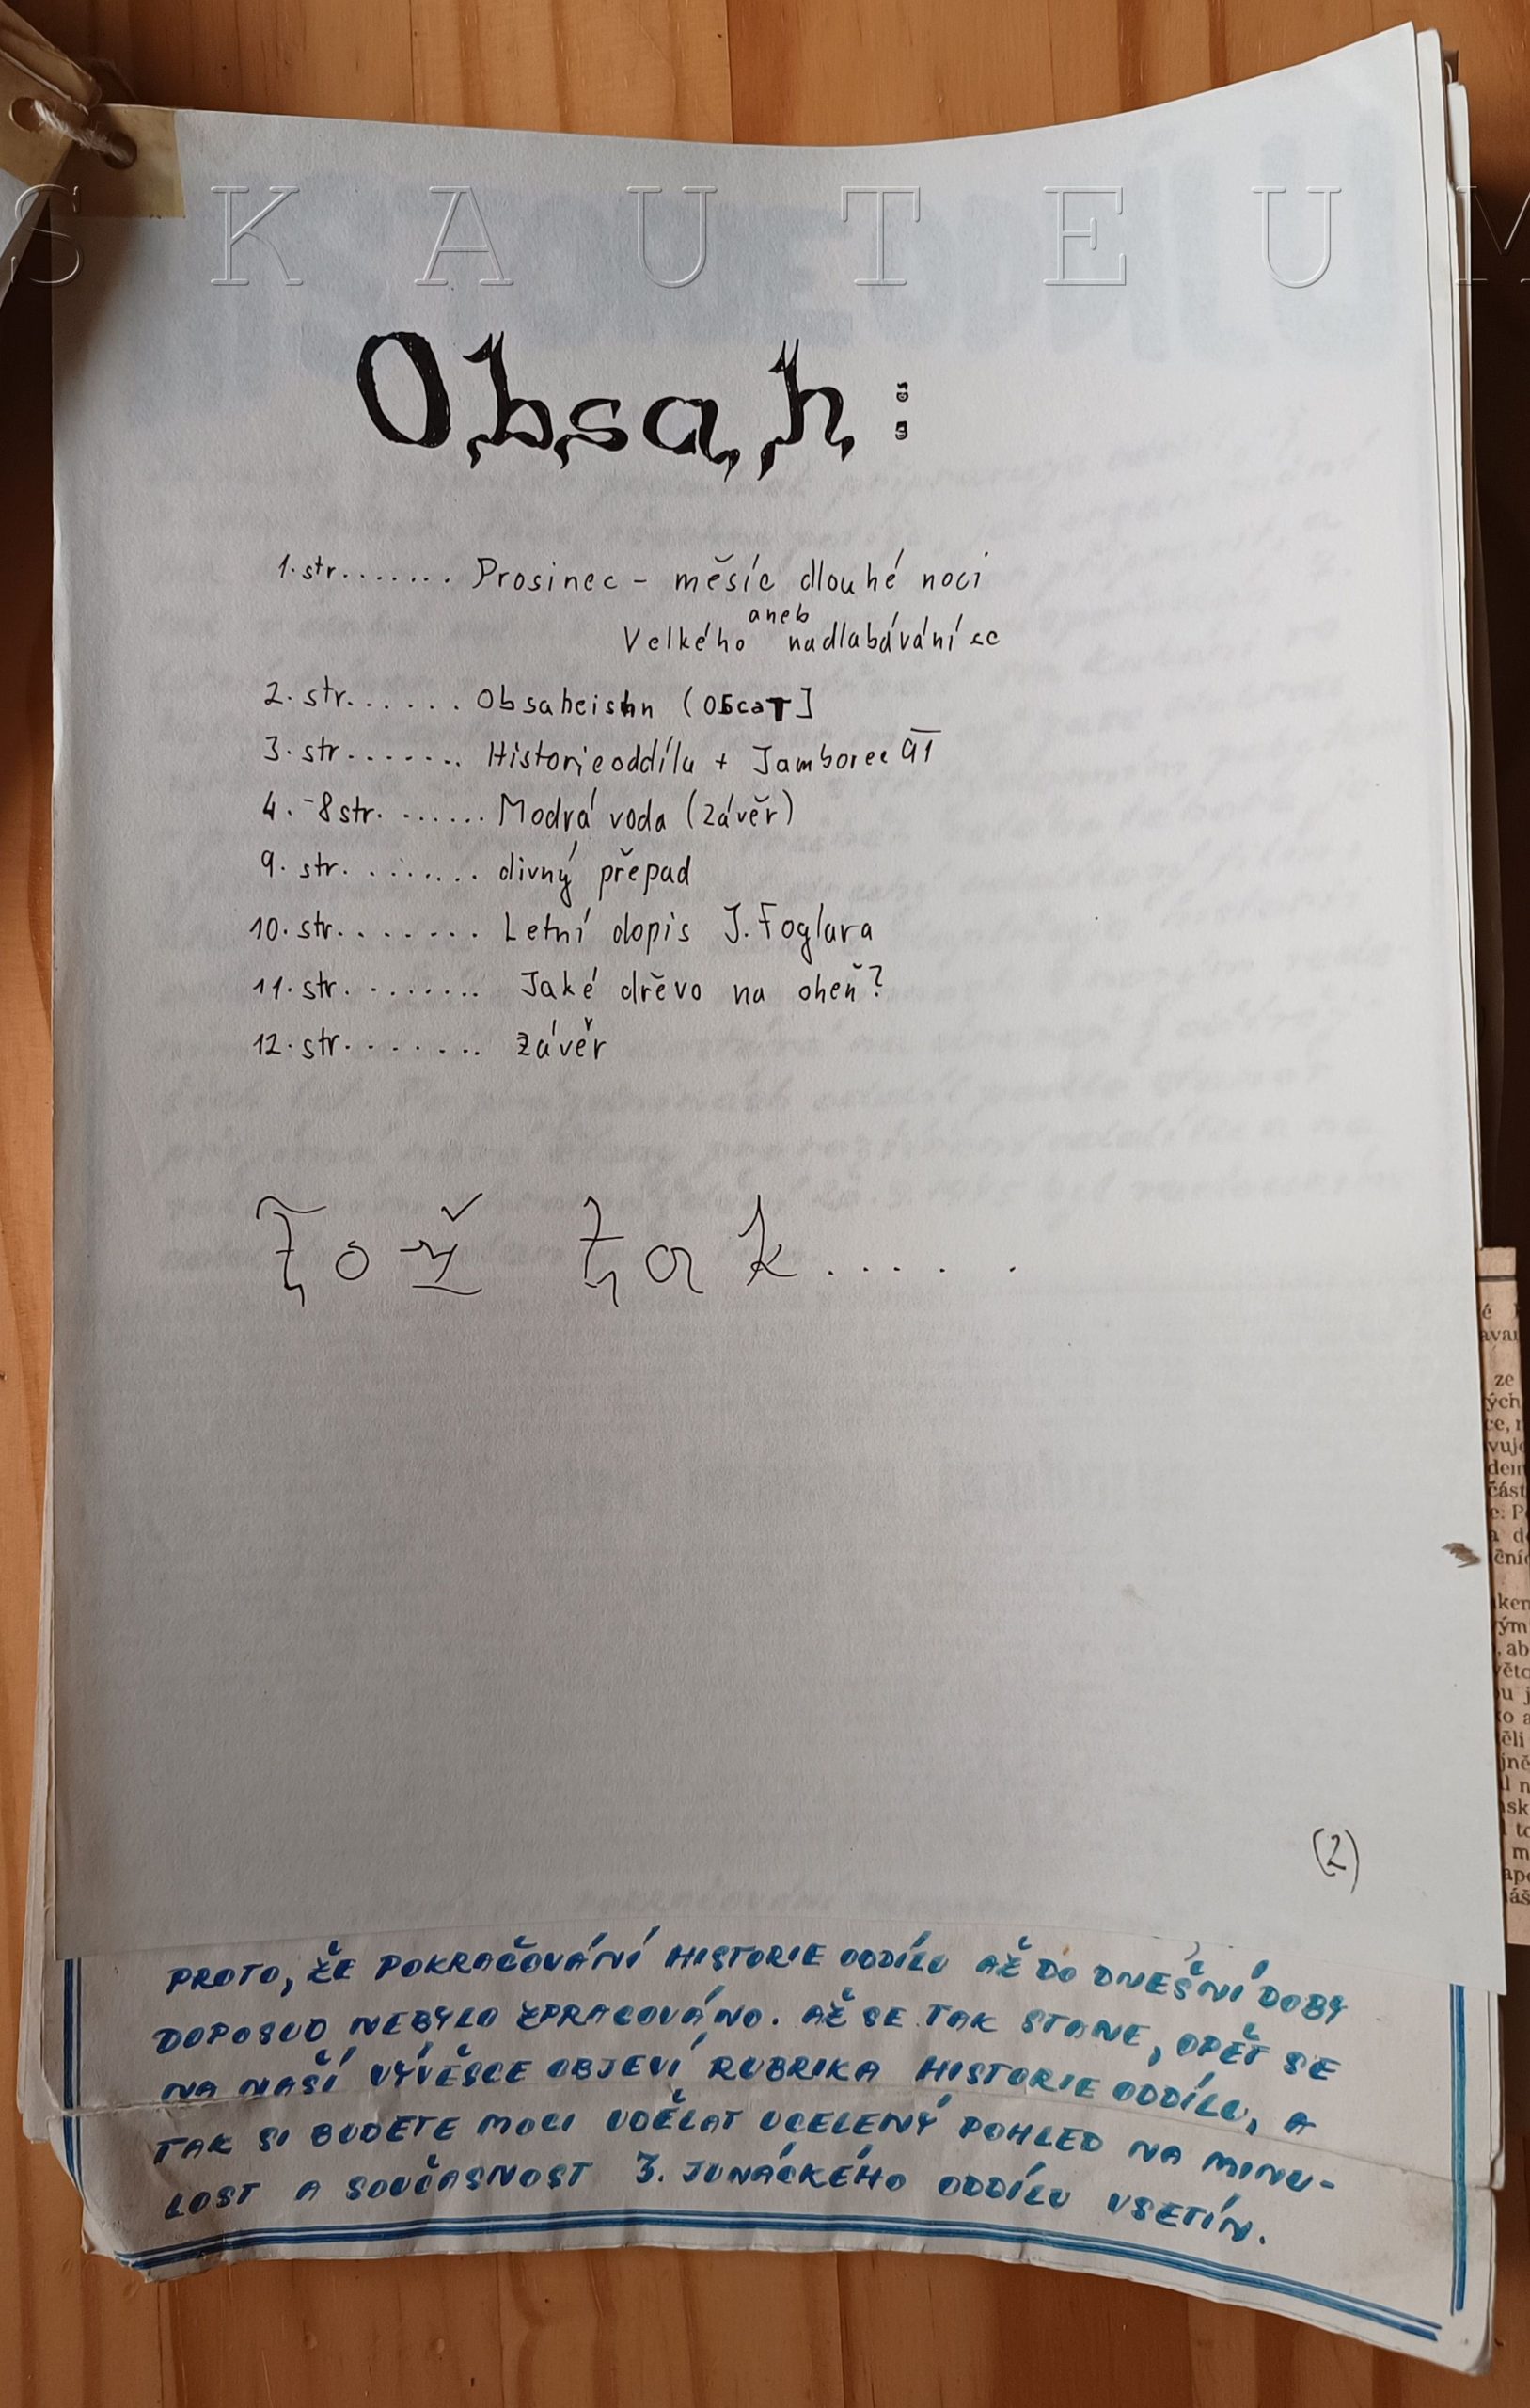 S K A U T E U M
Obsah:
1. str....... Prosinec - měsíc dlouhé noci
aneb
Velkého nadlabávání se
2. str...... Obsaheishn (Обсат]
3. str....... Historie oddílu + Jamboree 91
4.-8 str. ...... Modrá voda (závěr)
9. str. ....... divný přepad
10. str....... Letní dopis J. Foglara
11. str........ Jaké dřevo na oheň?
12. str....... závěr
Tož tak.....
(2)
PROTO, ŽE POKRAČOVÁNÍ HISTORIE ODDÍLU AŽ DO DNEŠNÍ DOBY
DOPOSUD NEBYLO ZPRACOVÁNO. AŽ SE TAK STANE, OPĚT SE
NA NAŠÍ VÝVĚSCE OBJEVÍ RUBRIKA HISTORIE ODDÍLU, A
TAK SI BUDETE MOCI UDĚLAT UCELENÝ POHLED NA MINU-
LOST A SOUČASNOST 3. JUNÁCKÉHO ODDÍLU VSETÍN.